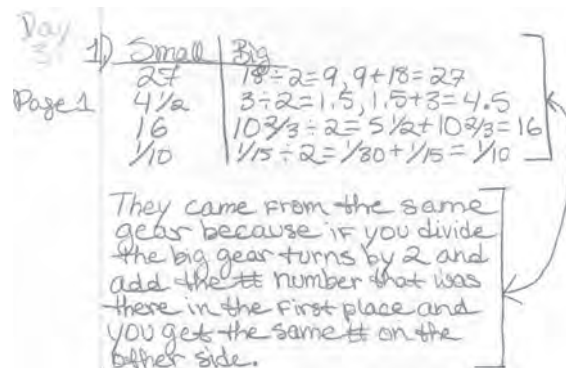 Day
3
1) Small | Big
27 | 18÷2=9, 9+18=27
Page 1
4 1/2 | 3÷2=1.5, 1.5+3=4.5
16 | 10 2/3 ÷ 2 = 5 1/2 + 10 2/3 = 16
1/10 | 1/15 ÷ 2 = 1/30 + 1/15 = 1/10
They came from the same
gear because if you divide
the big gear turns by 2 and
add the # number that was
there in the first place and
you get the same # on the
other side.